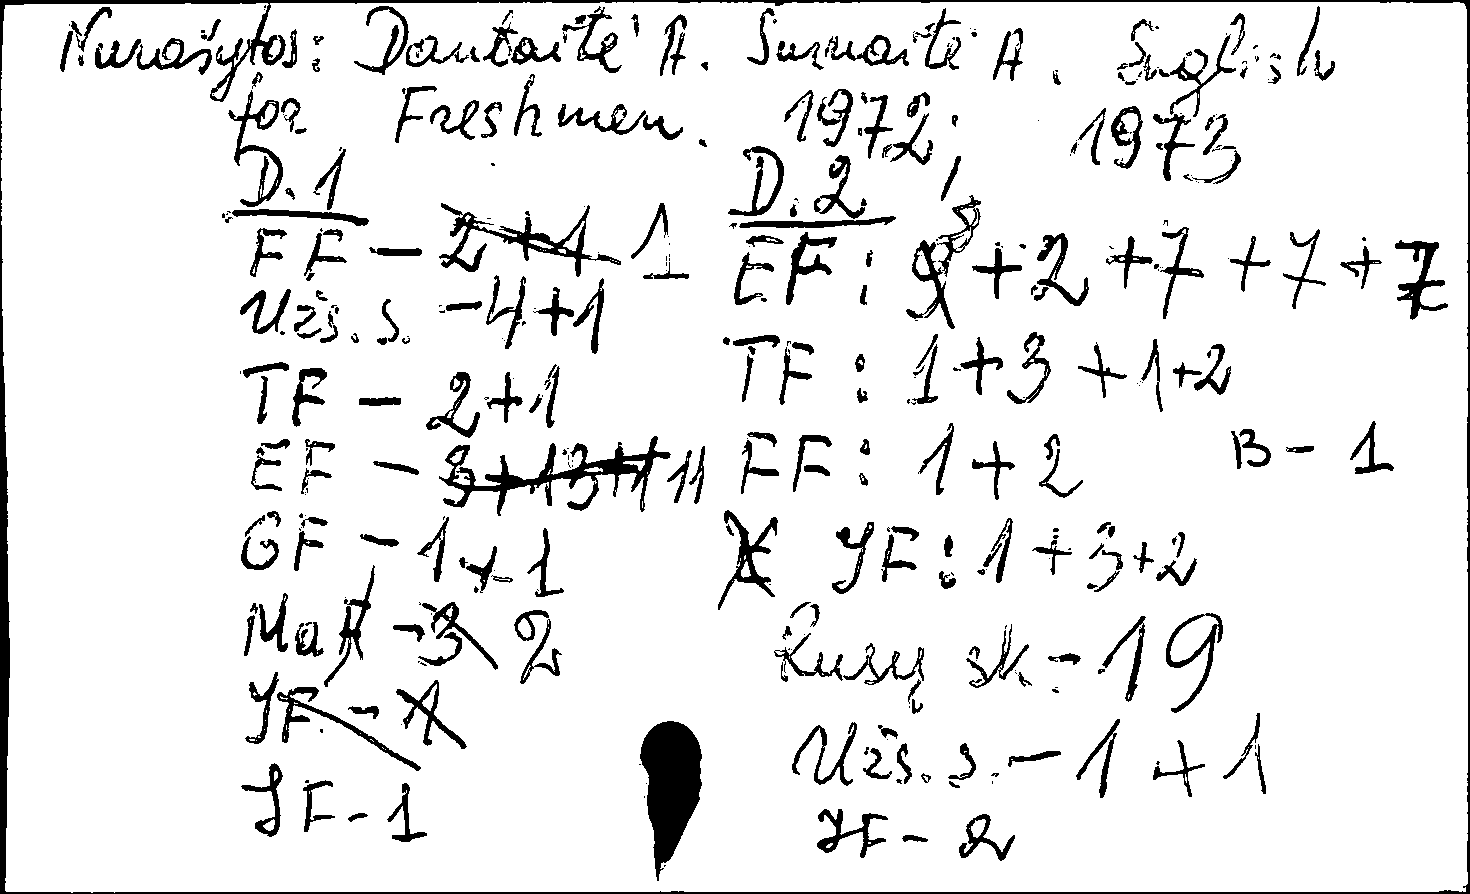 Nurašytos: Dautaitė A. Surnaitė A. English
for Freshmen. 1972; 1973
D.1
FF - 2+1 1
Užs.s. - 4+1
TF - 2+1
EF - 3+13+1 11
GF - 1+1
MaF - 3 2
JF - 1
JF - 1
D.2
EF: 8+2+7+7+7
TF: 1+3+1+2
FF: 1+2 B-1
JF: 1+3+2
Rusų sk. - 19
Užs.s. - 1+1
JF - 2